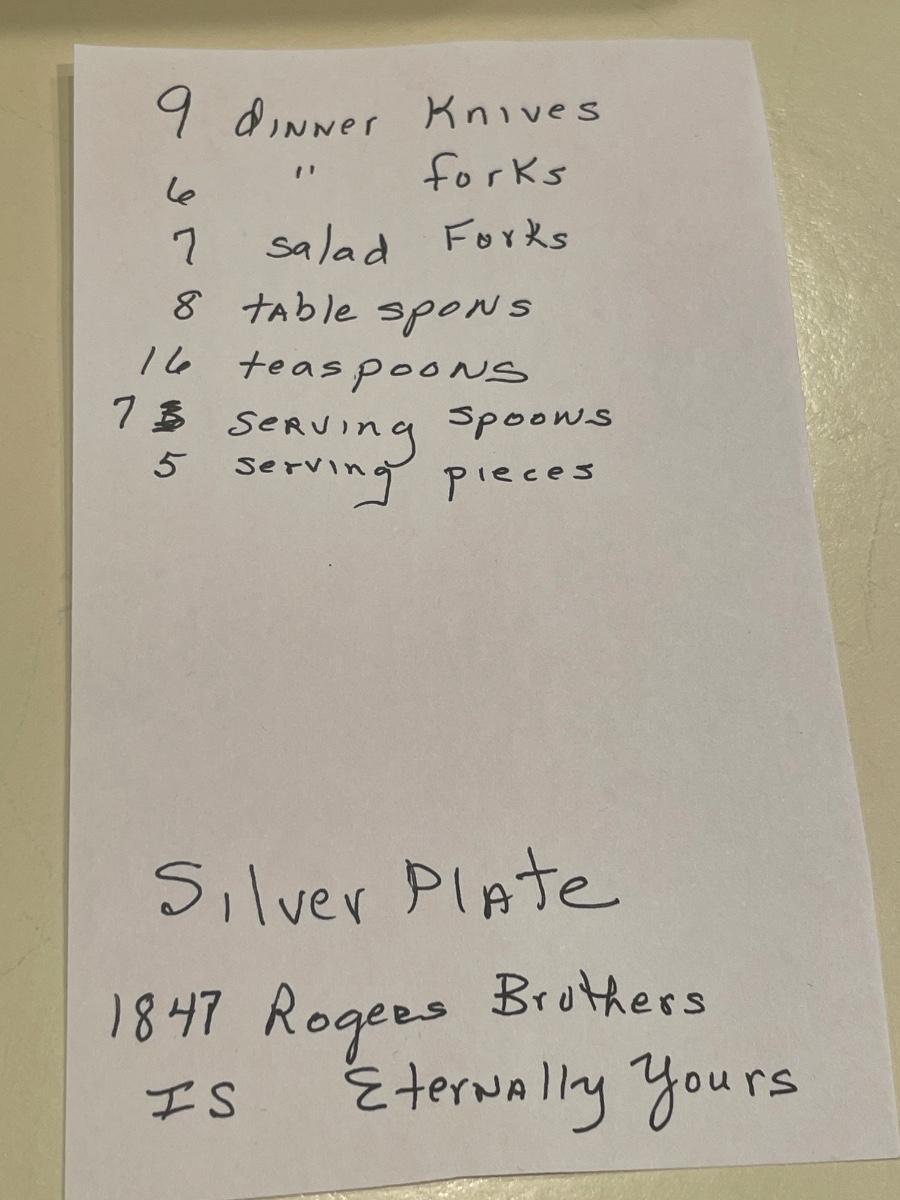 9 dinner Knives
6 " forks
7 salad Forks
8 table spons
16 teaspoons
7 serving spoons
5 serving pieces
Silver Plate
1847 Rogers Brothers
IS Eternally Yours